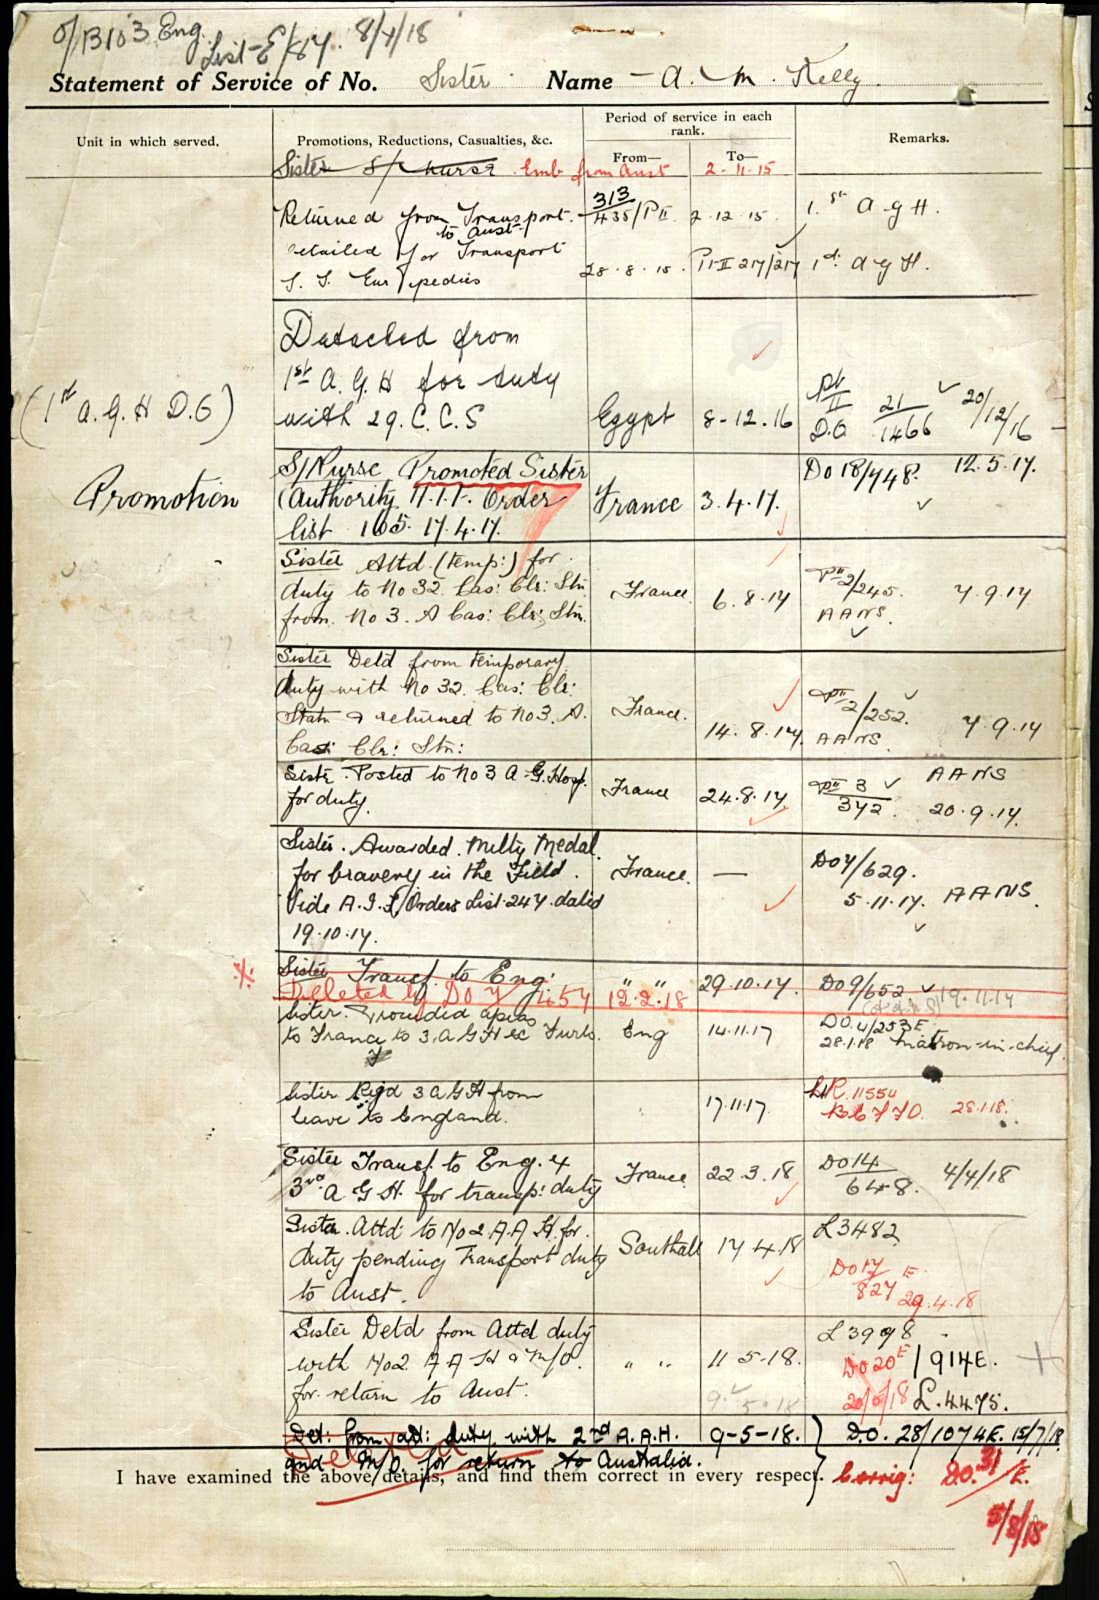 O/B103 Eng.
List-E/ 8/4/18
Statement of Service of No. Sister Name - A. M. Kelly.
Unit in which served.
Promotions, Reductions, Casualties, &c.
Period of service in each rank.
From—
To—
Remarks.
Sister S/Nurse Emb from Aust 2-11-15
Returned from Transport to Aust. 313/435/Pt II 2-12-15. 1st A G H.
Detailed for Transport
S. S. Euripedies 28.8.15. Pt II 217/217 1st A G H.
(1st A. G. H D.O)
Detached from
1st A. G. H for duty
with 29. C. C. S Egypt 8-12.16 Pt II D.O 21/1466 20/12/16
Promotion
S/Nurse Promoted Sister
(Authority A.I.F. Order
list 165. 17.4.17. France 3.4.17. Do 18/748. 12.5.17.
Sister Attd (temp:) for
duty to No 32 Cas: Clr: Stn
from No 3. A Cas: Clr: Stn. France 6.8.17 Pt 2/245. AANS. 7.9.17
Sister Detd from temporary
duty with No 32. Cas: Clr:
Statn & returned to No 3. A.
Cas: Clr: Stn: France. 14.8.17. Pt 2/252. AANS. 7.9.17
Sister. Posted to No 3 A-G. Hosp.
for duty. France 24.8.17. Pt II 3/372. AANS 20.9.17.
Sister. Awarded. Milty Medal.
for bravery in the Field.
Vide A.I.F/Orders List 247. dated
19.10.17. France. — Do 7/629. 5.11.17. AANS.
Sister Transf. to Eng: " " 29.10.17. Do 9/652 19.11.17
Deleted by DO 7/454 12.2.18
Sister. Proceeded
to France to 3. A G H ex Furlo. Eng 14.11.17 DO. 4/253E 28.1.18 Matron-in-chief.
Sister Rejd 3 A G H from
leave to England. 17.11.17. LR. 11554 28.1.18.
Sister Transf. to Eng. &
3rd A G H. for transp: duty France 22.3.18 Do 14/648. 4/4/18
Sister. Attd to No 2. A A H. for
duty pending Transport duty
to Aust. Southall 17 4.18 L3482 Do 17/827 E. 29.4.18
Sister Detd from Attd duty
with No 2 A A H & M/O.
for return to Aust. " " 11-5-18. L3998
9.5.18 Do 20E/914E. 20/5/18 L.4475.
Det: from att: duty with 2nd A.A.H. 9-5-18. D.O. 28/1074E. 15/7/18
and M/O. for return to Australia.
Deleted
I have examined the above details, and find them correct in every respect.
Corrig: D.O. 31/E. 5/8/18